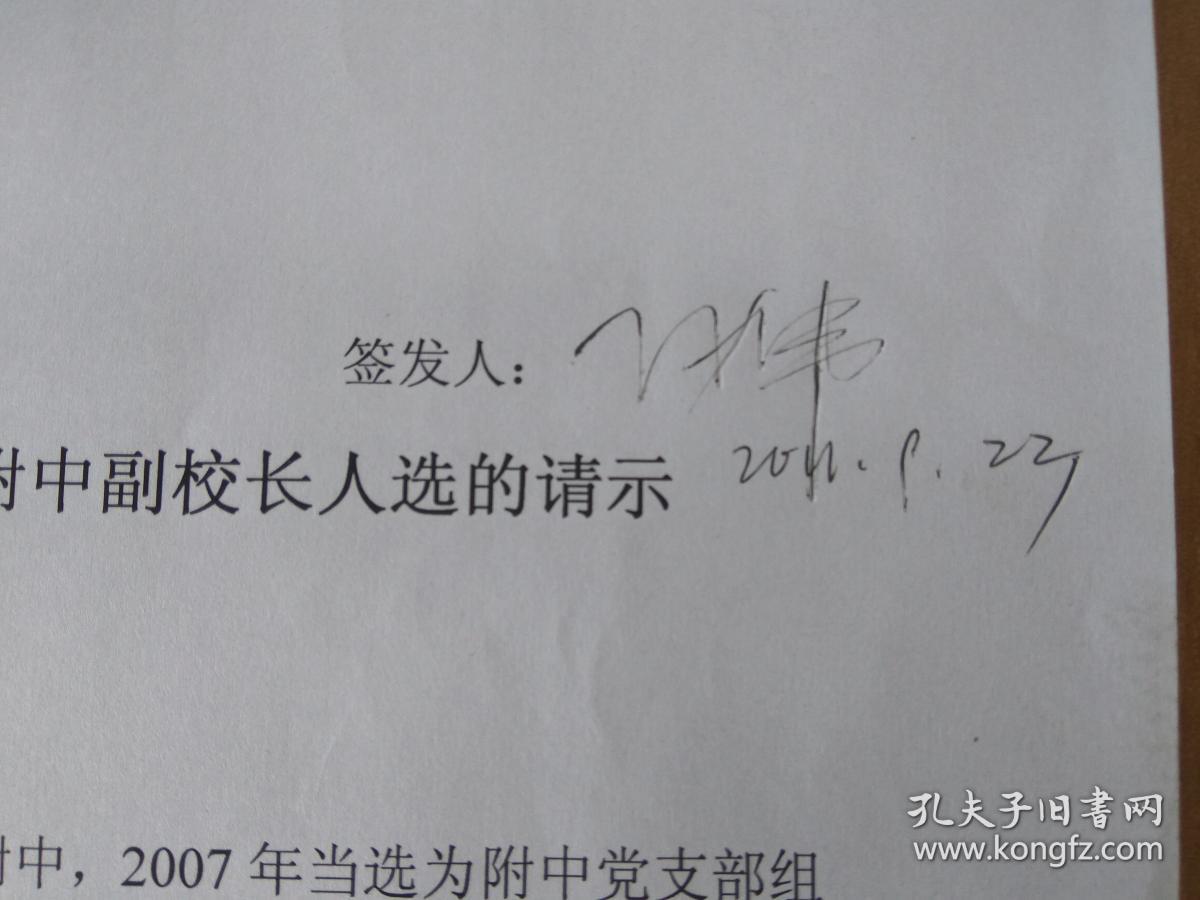 签发人：
附中副校长人选的请示 2011.9.22
附中，2007 年当选为附中党支部组
孔夫子旧書网
www.kongfz.com